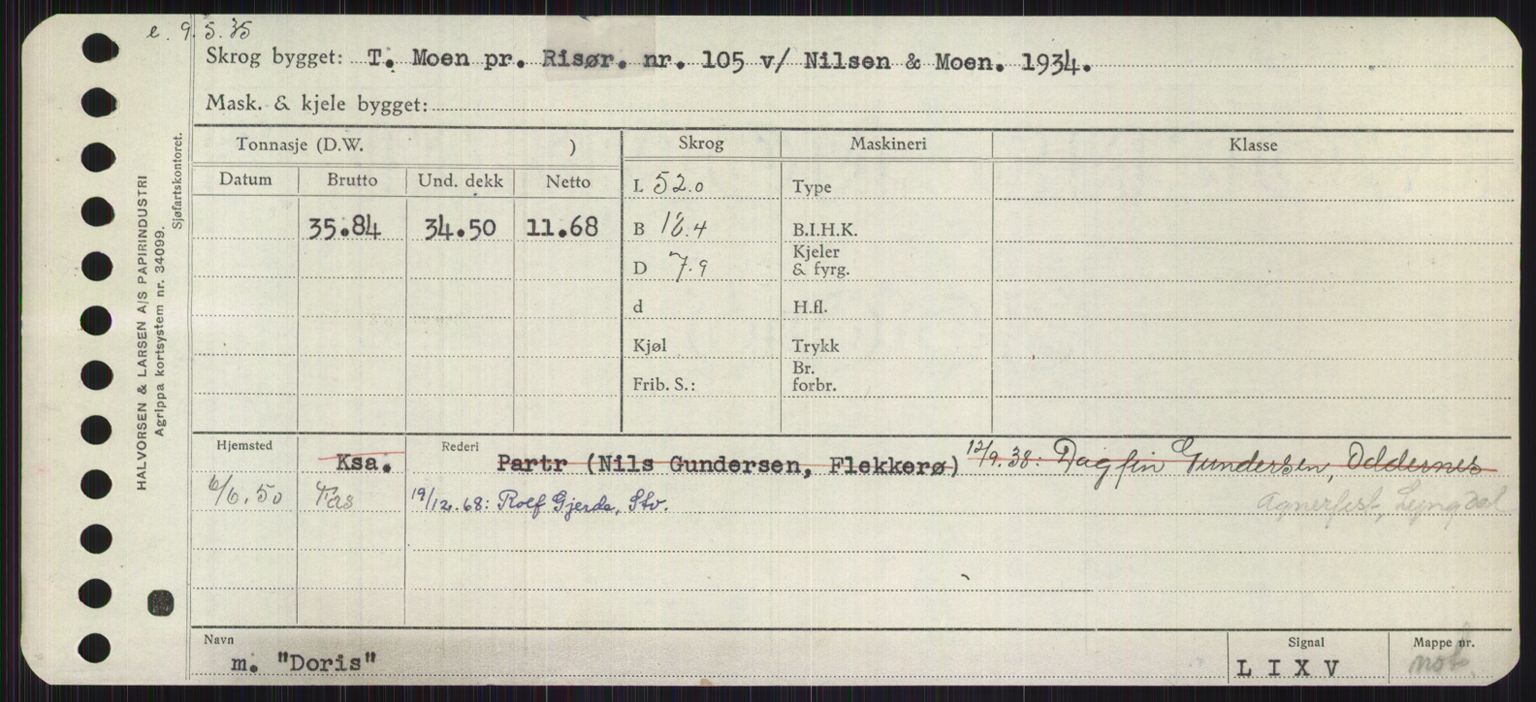 e. 9.5.35
Skrog bygget: T. Moen pr. Risør. nr. 105 v/ Nilsen & Moen. 1934.
Mask. & kjele bygget:
HALVORSEN & LARSEN A/S PAPIRINDUSTRI
Agrippa kortsystem nr. 34099.
Sjøfartskontoret.
Tonnasje (D.W. ) Skrog Maskineri Klasse
Datum Brutto Und. dekk Netto
L 52.0 Type
35.84 34.50 11.68 B 18.4 B.I.H.K.
D 7.9 Kjeler & fyrg.
d H.fl.
Kjøl Trykk
Frib. S.: Br. forbr.
Hjemsted Rederi
Ksa. Partr (Nils Gundersen, Flekkerø) 12/9.38: Dagfin Gundersen, Oddernes
6/6.50 Fas 19/12.68: Rolf Gjerde, Stv. Agnefest, Lyngdal
Navn Signal Mappe nr.
m. "Doris" L I X V not.